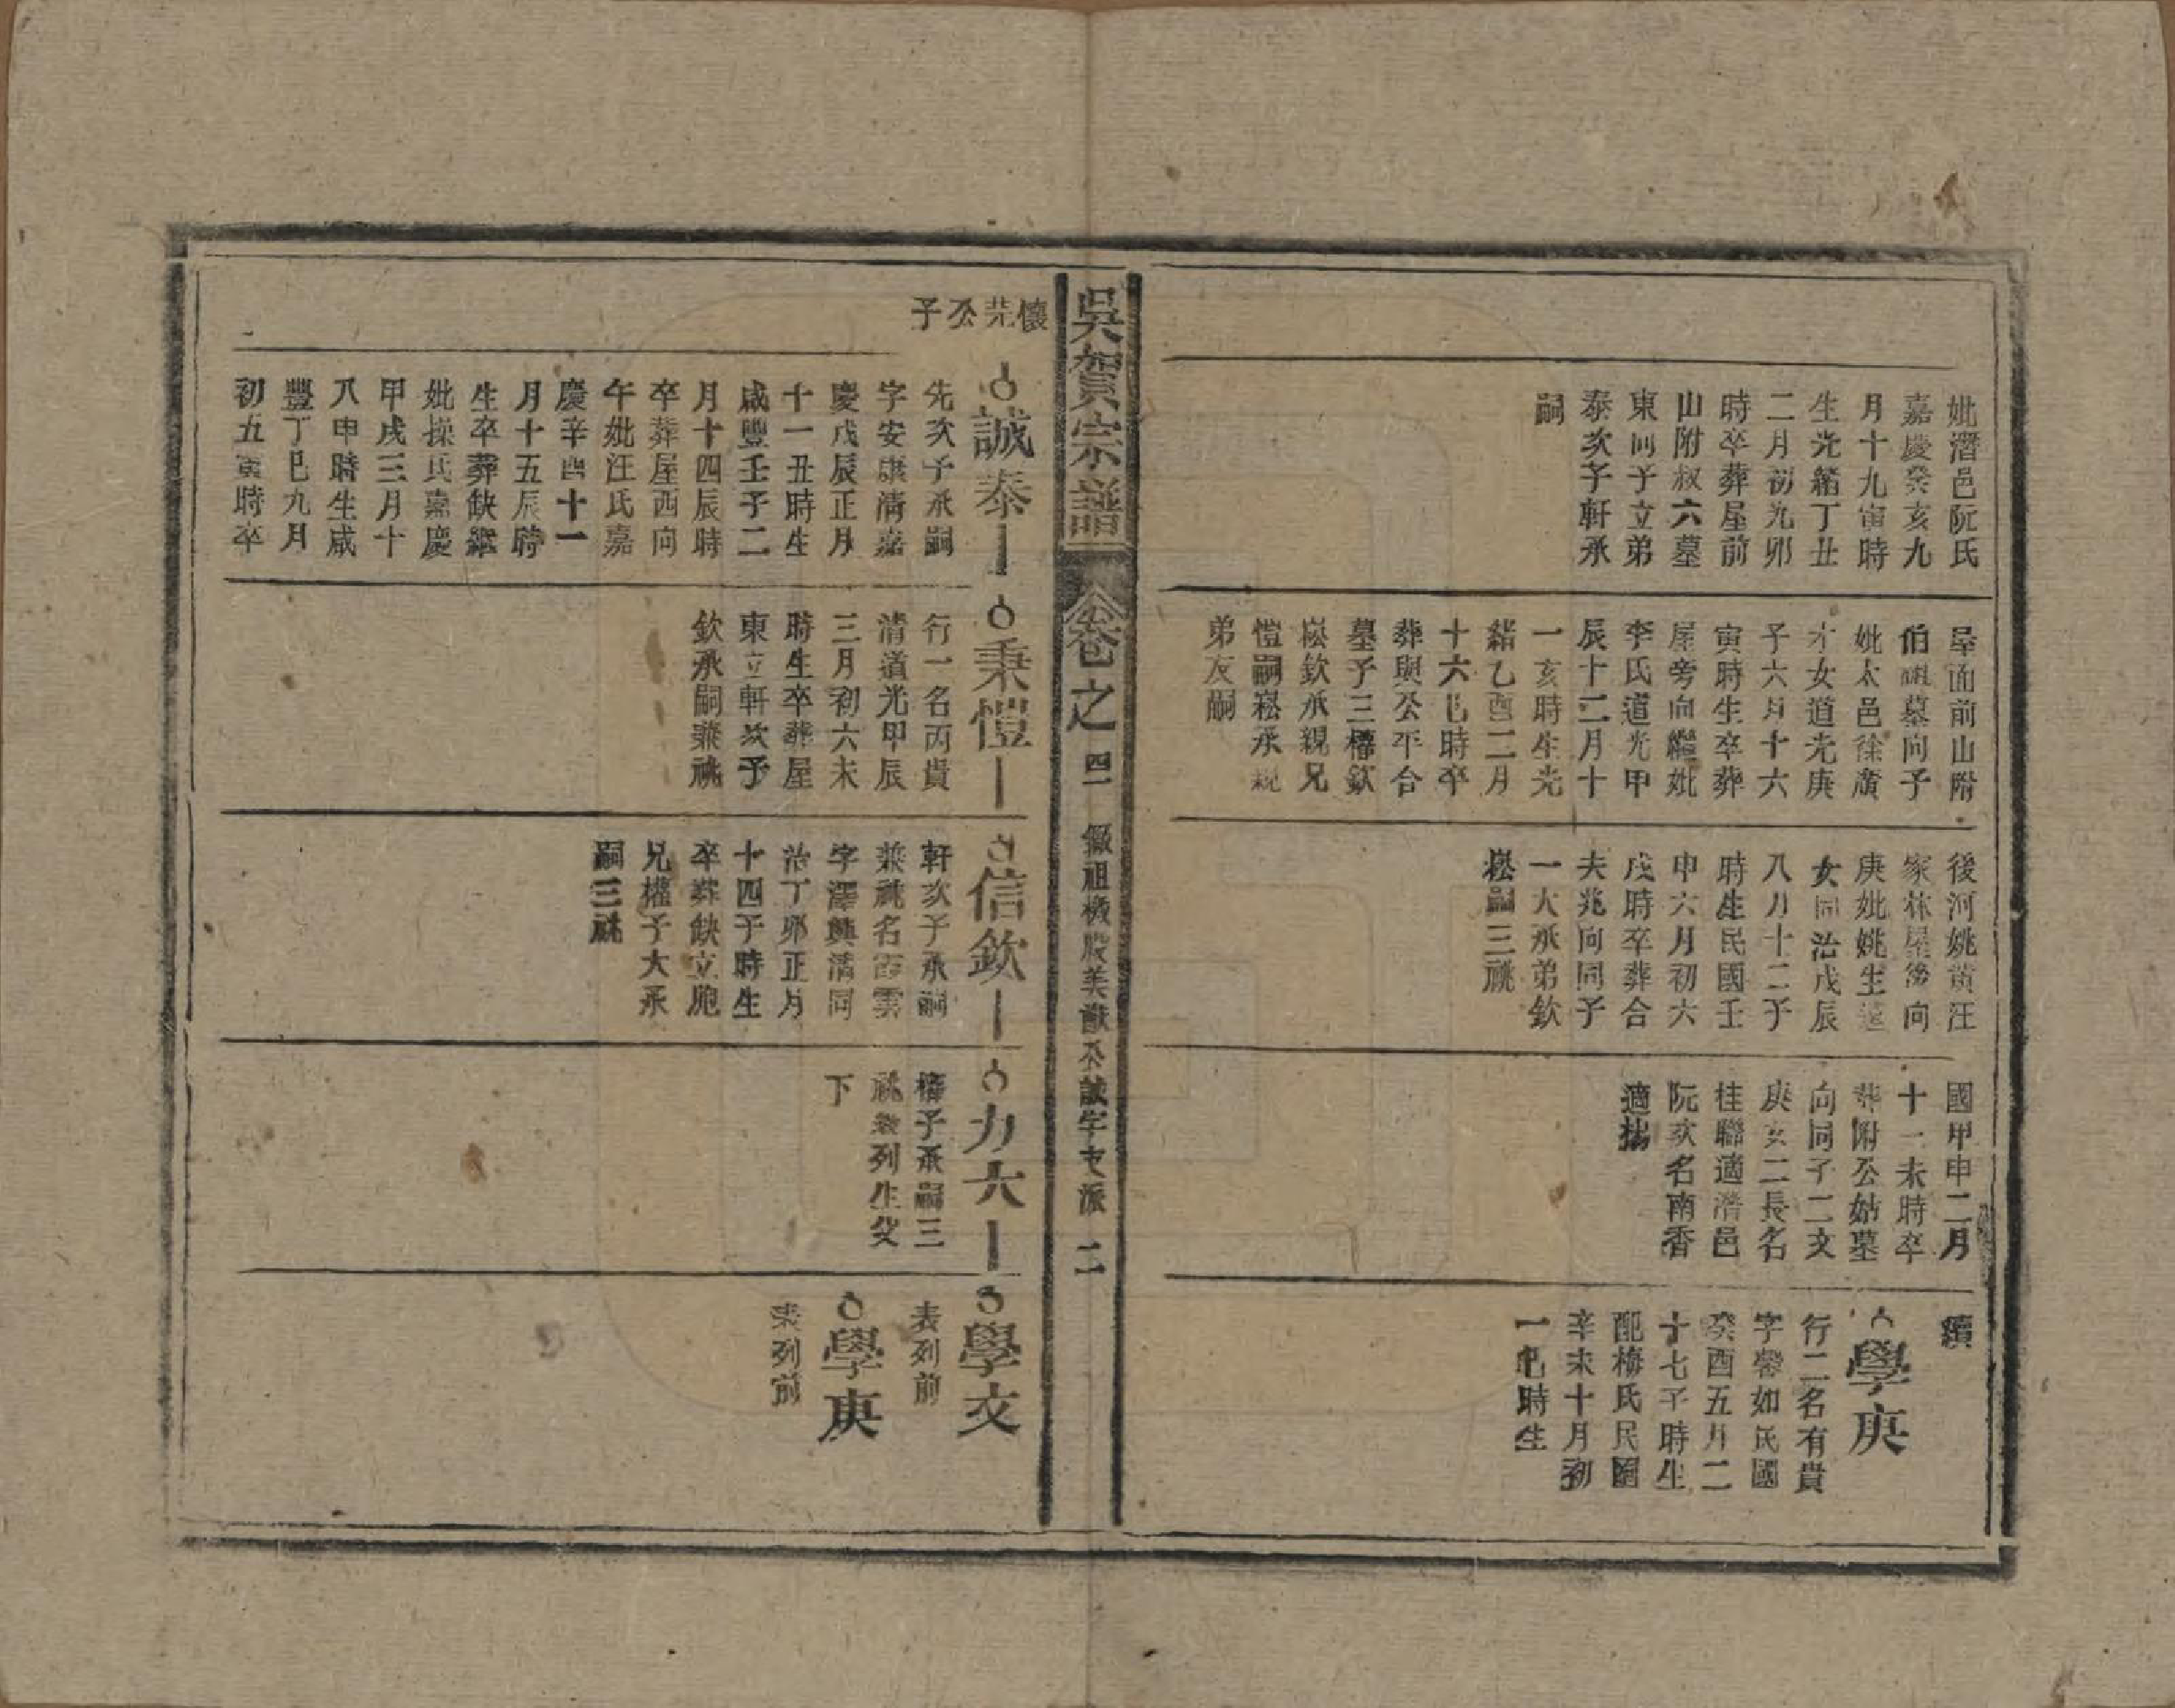 妣潛邑阮氏
嘉慶癸亥九
月十九寅時
生光緒丁丑
二月初九卯
時卒葬屋前
山附叔六墓
東向子立弟
泰次子軒承
嗣
屋面前山附
伯祖墓向子
妣太邑徐廣
才女道光庚
子六月十六
寅時生卒葬
屋旁向繼妣
李氏道光甲
辰十二月十
一亥時生光
緒乙酉二月
十六巳時卒
葬與公平合
墓子三權欽
崧欽承親兄
愷嗣崧承親
弟友嗣
後河姚黄汪
家林屋後向
庚妣姚生
女同治戊辰
八月十二子
時生民國壬
申六月初六
戌時卒葬合
夫兆向同子
一大承弟欽
崧嗣三祧
國甲申二月
十一未時卒
葬附公姑墓
向同子二文
庚女二長名
桂聯適潛邑
阮次名南香
適
續
學庚
行二名有貴
字馨如民國
癸酉五月二
十七子時生
配梅氏民國
辛未十月初
一巳時生
吳賀宗譜
卷之四 徽祖機股美猷公誠字支派 二
懷芫公子
誠泰
先次子承嗣
字安康清嘉
慶戊辰正月
十一丑時生
咸豐壬子二
月十四辰時
卒葬屋西向
午妣汪氏嘉
慶辛酉十一
月十五辰時
生卒葬缺繼
妣操氏嘉慶
甲戌三月十
八申時生咸
豐丁巳九月
初五寅時卒
秉愷
行一名丙貴
清道光甲辰
三月初六未
時生卒葬屋
東立軒次子
欽承嗣兼祧
信欽
軒次子承嗣
兼祧名雲
字澤興清同
治丁卯正月
十四子時生
卒葬缺立胞
兄權子大承
嗣三祧
力大
權子承嗣三
祧表列生父
下
學文
表列前
學庚
表列前